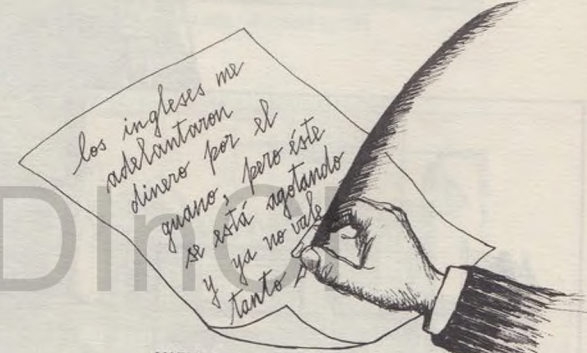 los ingleses me
adelantaron
dinero por el
guano, pero éste
se está agotando
y ya no vale
tanto